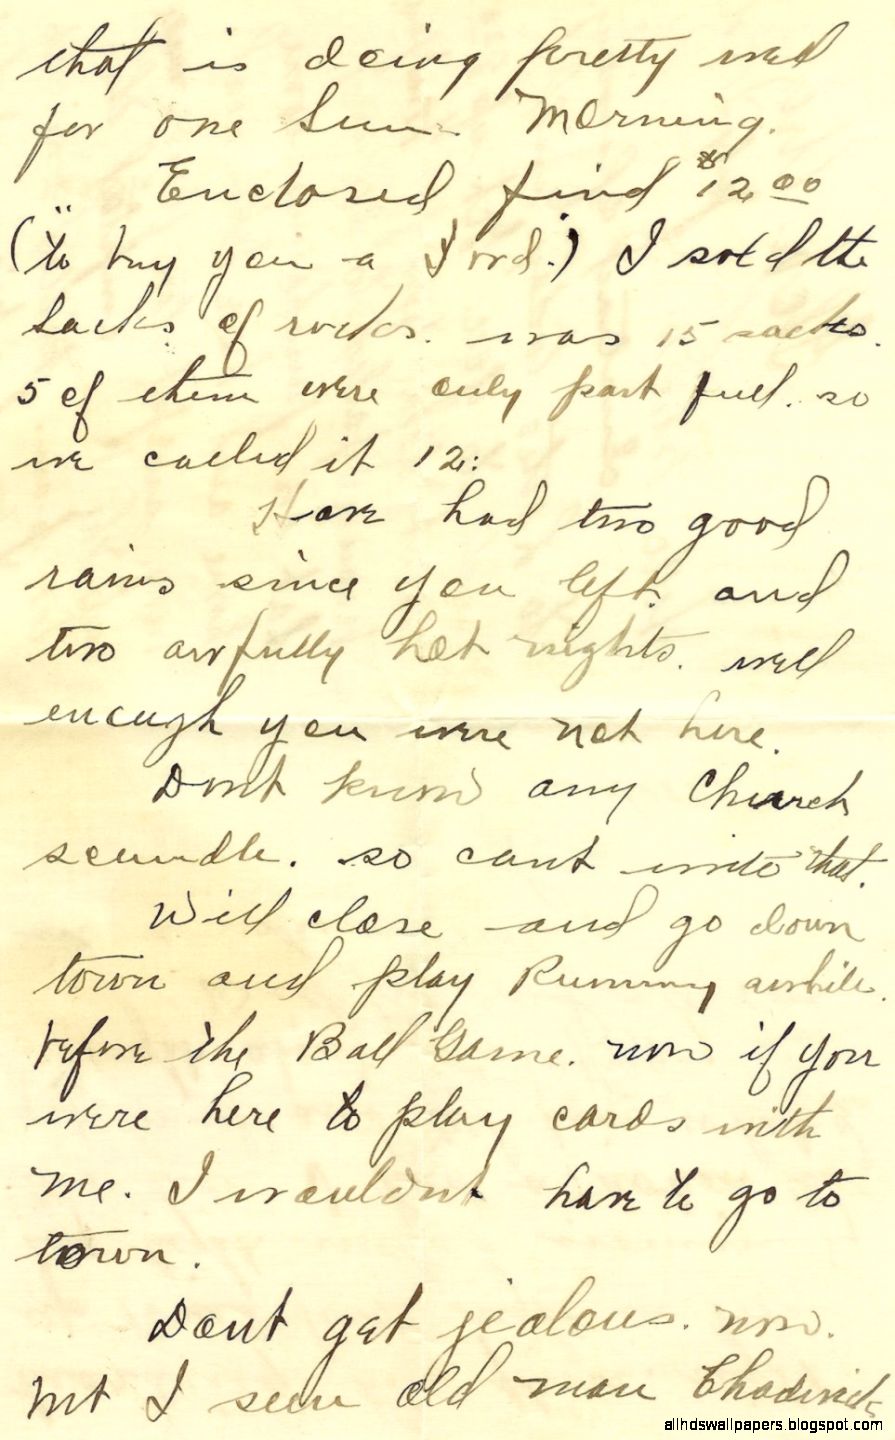 that is doing pretty well
for one Sun. Morning.
Enclosed find $12 00
("to buy you a Ford.") I sold the
Sacks of rocks. was 15 sacks.
5 of them were only part full. so
we called it 12:
Have had two good
rains since you left. and
two awfully hot nights. well
enough you were not here.
Dont know any Church
scandle. so cant write that.
Will close and go down
town and play Rummy awhile.
before the Ball Game. now if you
were here to play cards with
me. I wouldnt have to go to
town.
Dont get jealous. now.
but I seen old man Chadwick
allhdswallpapers.blogspot.com